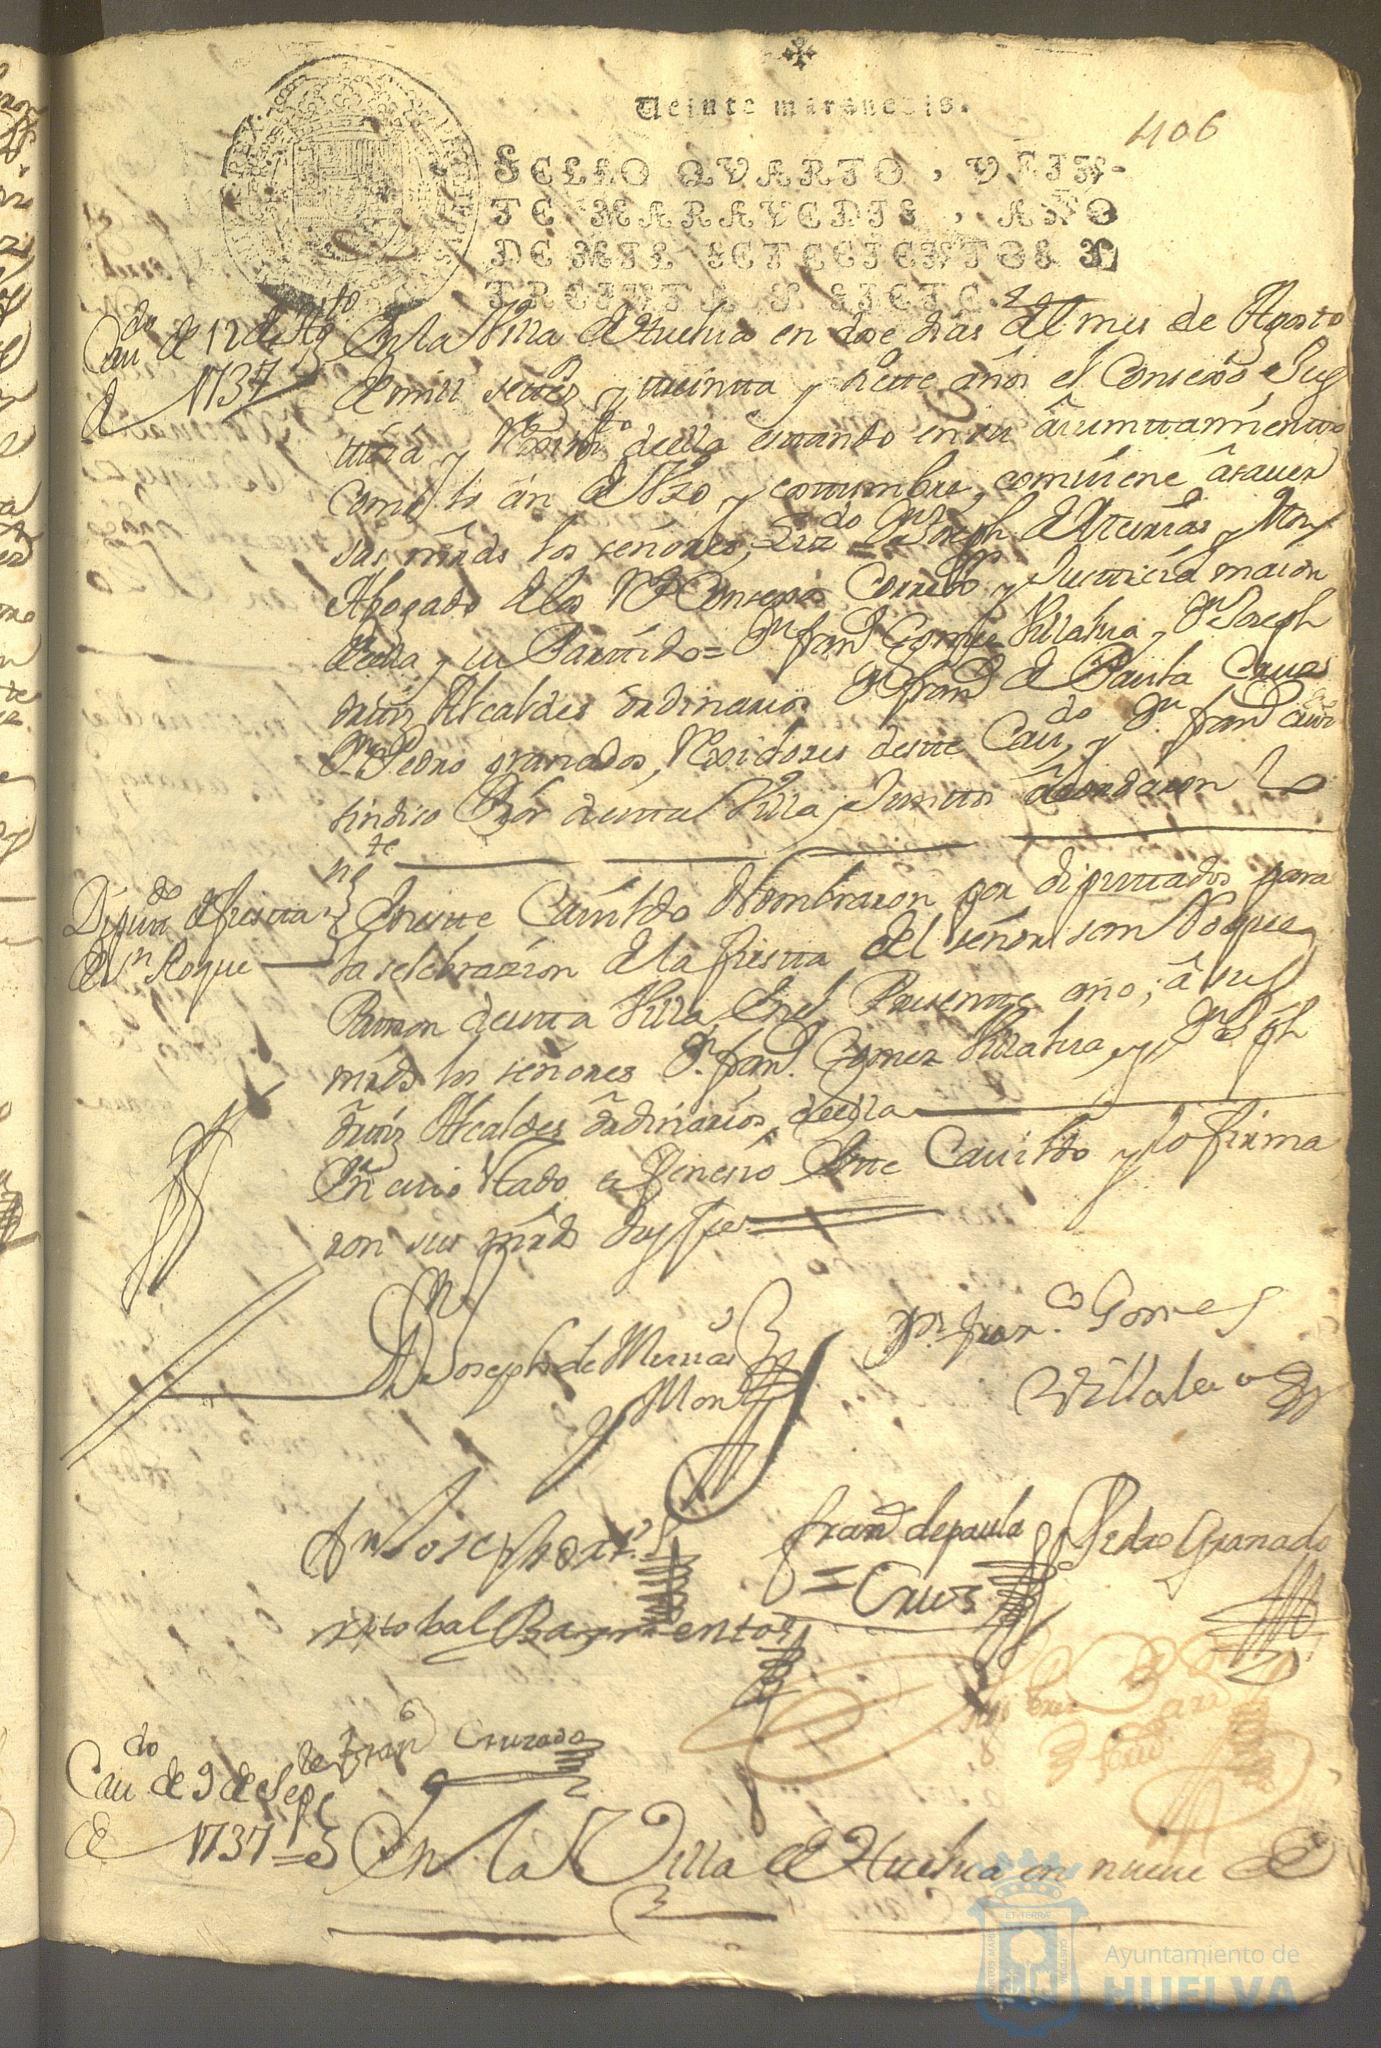 Veinte maravedis.
406
SELLO QVARTO, VEIN-
TE MARAVEDIS, AÑO
DE MIL SETECIENTOS Y
TREINTA Y SIETE.
Cau.do de 12 de Ag.to
de 1737
En la Villa de Huelva en doce dias del mes de Agosto
de mill settez.s y treintta y siette años el Consexo Jus
ttizia y Reximt.o della estando en su aiuntamiento
como lo an de Vso y costumbre, combiene a sauer
sus mrds los señores, Liz.do Dn Joseph de Mermas y Mon
Abogado de los R.s Consexos Correx.or y Justticia maior
della y su Parttido= Dn fran.co Gomez Villalua y Dn Joseph
Alcaldes ordinarios Dn fran.co de Paula Cruz
Dn Pedro granados, Rexidores destte Cau.do y Dn fran.co
sindico Pror destta Villa, Junttos acordaron
Diputt.dos de fiestta
de Sn Roque
En estte Cauildo Nombraron por diputtados para
la selebrazion de la fiestta del señor san Roque
Pattron destta Villa En el Presentte año; a sus
mrds los señores Dn fran.co Gomez Villalua, y Dn Jph
Alcaldes ordinarios, della
En cuio esttado se fenesio estte Cauildo y lo firma
ron sus mrds doy fee
Joseph de Mermas
y Mon
Dn fran.co Gomes
Villalua
Dn Joseph
fran.co de paula
Cruz
Pedro Granado
Xptobal Barrientos
fran.co Cruzado
Cau.do de 9 de Sep.re
de 1737
En la Villa de Huelva en nueue de
Ayuntamiento de
HUELVA